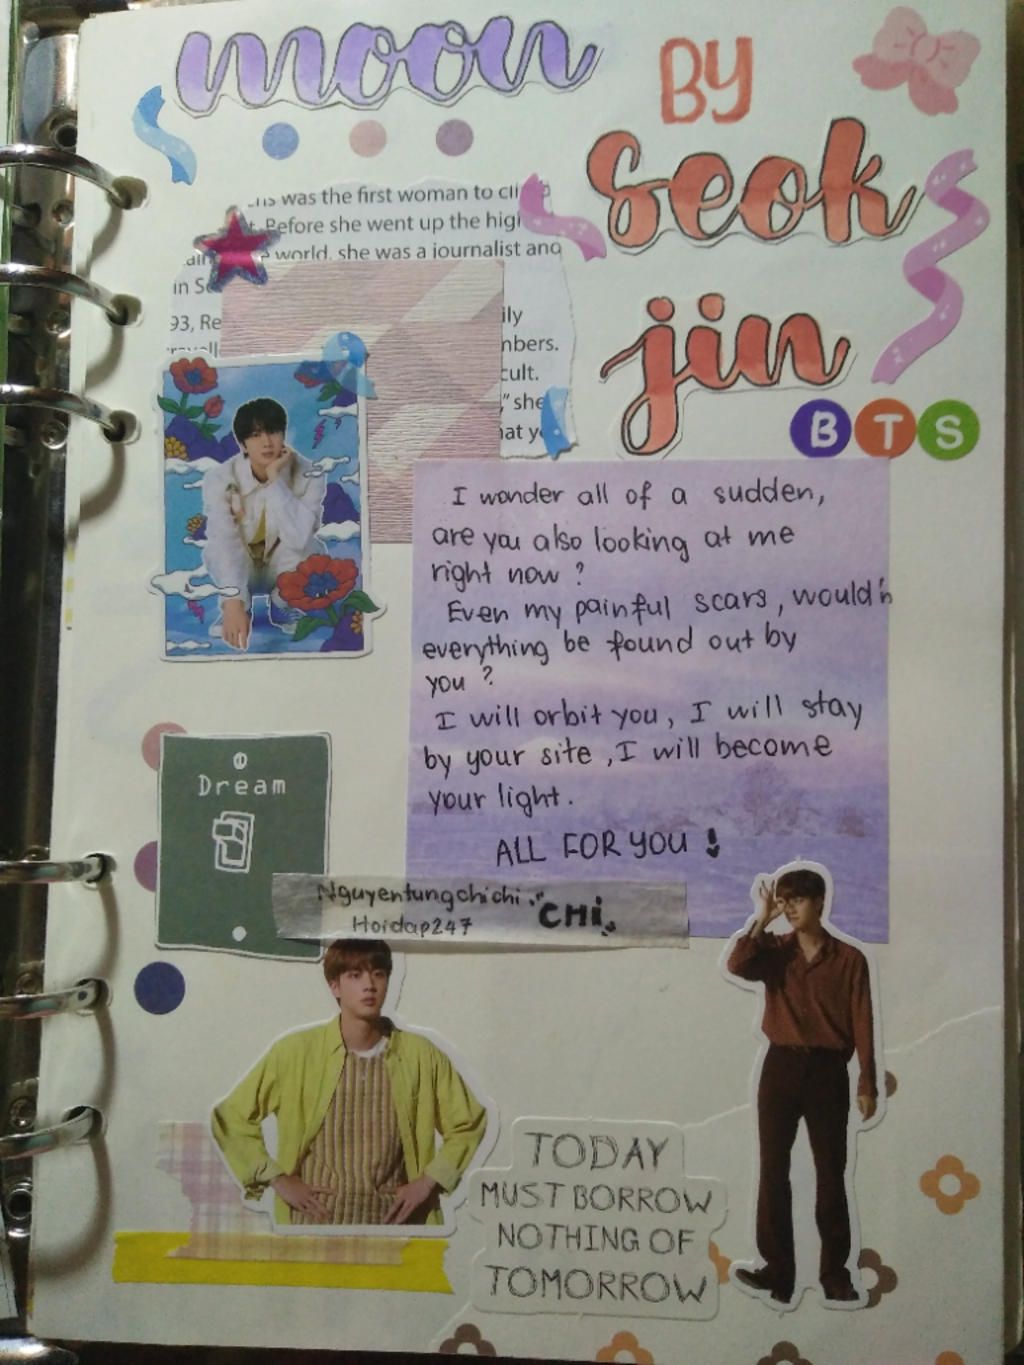 moon
BY
Seok
jin
BTS
was the first woman to
Before she went up the
world, she was a journalist and
in
93,
cult.
" she
I wonder all of a sudden,
are you also looking at me
right now ?
Even my painful scars, would'n
everything be found out by
you ?
I will orbit you, I will stay
by your site, I will become
your light.
ALL FOR YOU !
Dream
Nguyentungchichi
CHi
Hoidap247
TODAY
MUST BORROW
NOTHING OF
TOMORROW